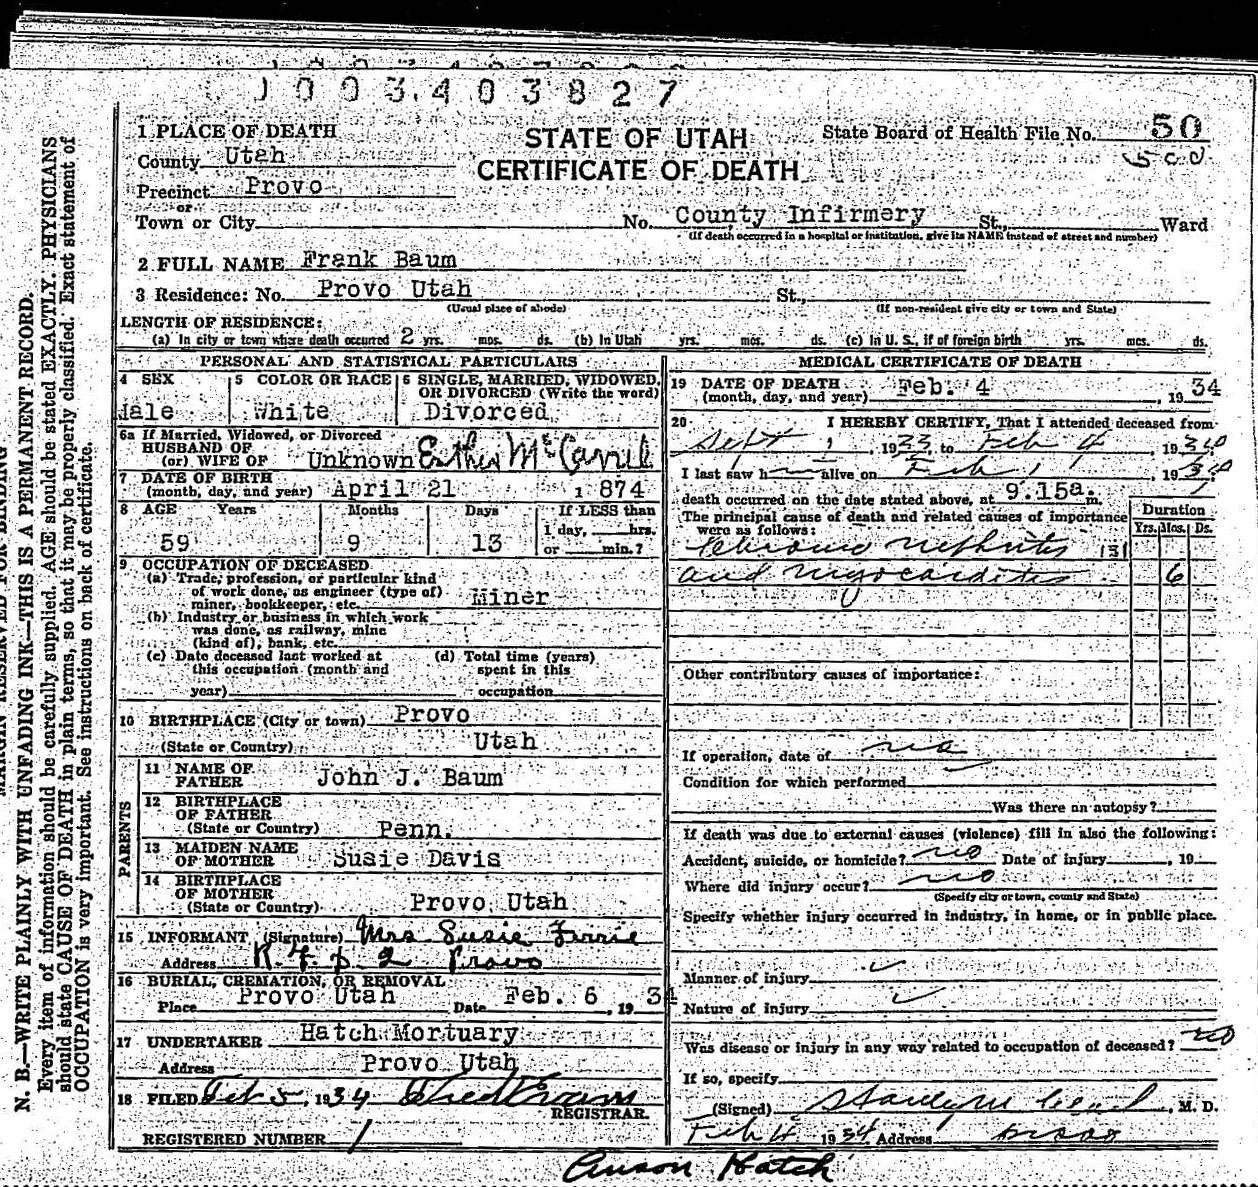 1003403827
1 PLACE OF DEATH
County Utah
Precinct Provo
or
Town or City
STATE OF UTAH
CERTIFICATE OF DEATH
State Board of Health File No. 50
No. County Infirmery St., Ward
(If death occurred in a hospital or institution, give its NAME instead of street and number)
2 FULL NAME Frank Baum
3 Residence: No. Provo Utah St.,
(Usual place of abode) (If non-resident give city or town and State)
LENGTH OF RESIDENCE:
(a) In city or town where death occurred 2 yrs. mos. ds. (b) In Utah yrs. mos. ds. (c) In U. S., if of foreign birth yrs. mos. ds.
PERSONAL AND STATISTICAL PARTICULARS
4 SEX 5 COLOR OR RACE 6 SINGLE, MARRIED, WIDOWED,
OR DIVORCED (Write the word)
Male White Divorced
6a If Married, Widowed, or Divorced
HUSBAND OF
(or) WIFE OF Unknown Esther McCarrel
7 DATE OF BIRTH
(month, day, and year) April 21 1 874
8 AGE Years Months Days If LESS than
1 day, hrs.
59 9 13 or min.?
9 OCCUPATION OF DECEASED
(a) Trade, profession, or particular kind
of work done, as engineer (type of)
miner, bookkeeper, etc. Miner
(b) Industry or business in which work
was done, as railway, mine
(kind of), bank, etc.
(c) Date deceased last worked at
this occupation (month and
year)
(d) Total time (years)
spent in this
occupation
10 BIRTHPLACE (City or town) Provo
(State or Country) Utah
PARENTS
11 NAME OF
FATHER John J. Baum
12 BIRTHPLACE
OF FATHER
(State or Country) Penn.
13 MAIDEN NAME
OF MOTHER Susie Davis
14 BIRTHPLACE
OF MOTHER
(State or Country) Provo Utah
15 INFORMANT (Signature) Mrs Susie
Address R.F.D. 2 Provo
16 BURIAL, CREMATION, OR REMOVAL
Place Provo Utah Date Feb. 6, 19 34
17 UNDERTAKER Hatch Mortuary
Address Provo Utah
18 FILED Feb 5, 1934
REGISTRAR.
REGISTERED NUMBER 1
MEDICAL CERTIFICATE OF DEATH
19 DATE OF DEATH
(month, day, and year) Feb. 4, 19 34
20 I HEREBY CERTIFY, That I attended deceased from
Sept 1, 1933, to Feb 4, 1934
I last saw h alive on Feb 1, 1934
death occurred on the date stated above, at 9.15a m.
The principal cause of death and related causes of importance
were as follows:
Duration
Yrs. Mos. Ds.
Chronic nephritis 131
and myocarditis 6
Other contributory causes of importance:
If operation, date of no
Condition for which performed
Was there an autopsy?
If death was due to external causes (violence) fill in also the following:
Accident, suicide, or homicide? no Date of injury, 19
Where did injury occur? no
(Specify city or town, county and State)
Specify whether injury occurred in industry, in home, or in public place.
Manner of injury
Nature of injury
Was disease or injury in any way related to occupation of deceased? no
If so, specify
(Signed) M. D.
Feb 4 1934 Address Provo
Anson Hatch
MARGIN RESERVED FOR BINDING
N. B.—WRITE PLAINLY WITH UNFADING INK—THIS IS A PERMANENT RECORD.
Every item of information should be carefully supplied. AGE should be stated EXACTLY. PHYSICIANS
should state CAUSE OF DEATH in plain terms, so that it may be properly classified. Exact statement of
OCCUPATION is very important. See instructions on back of certificate.